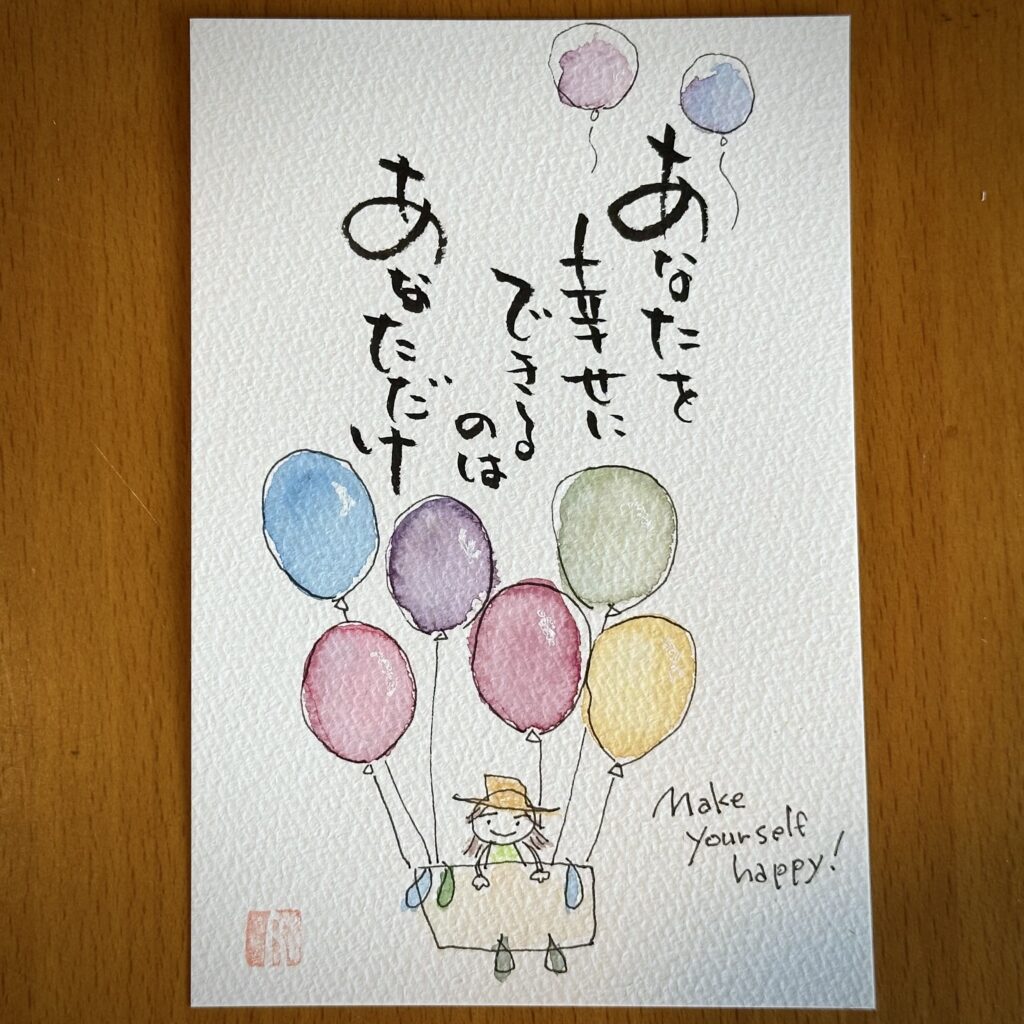 あなたを
幸せに
できる
のは
あなただけ
Make
yourself
happy!